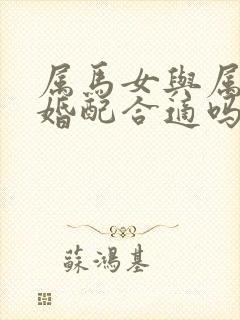 属马女與属
婚配合適吗
蘇鴻基